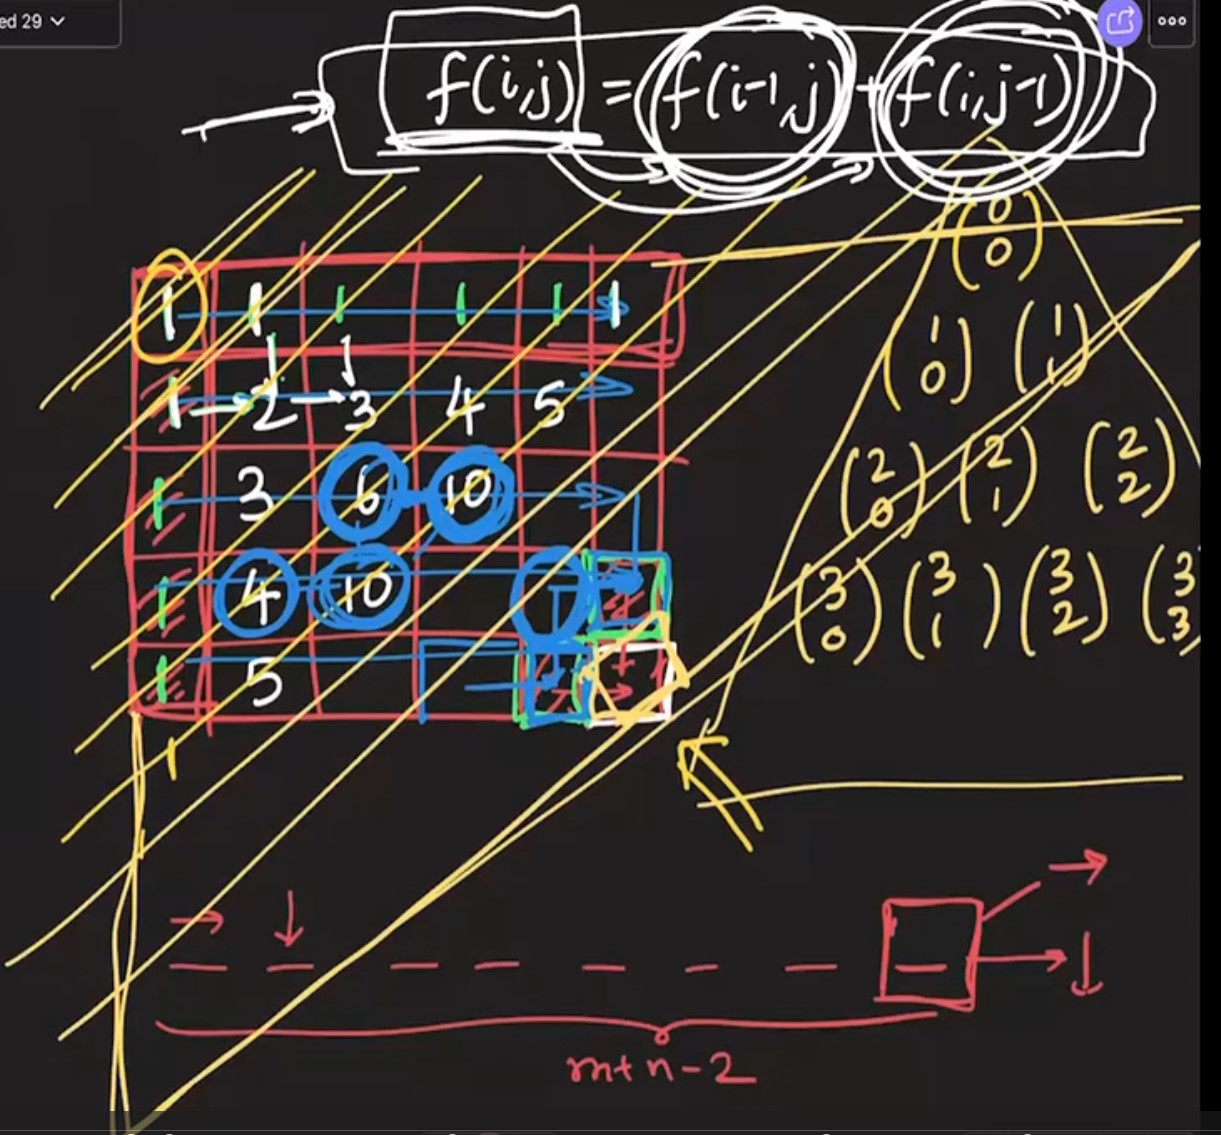 ed 29
f(i,j) = f(i-1,j) + f(i,j-1)
(0 0)
1 1 1 1 1 1
(1 0) (1 1)
1 → 2 → 3 4 5
1 3 6 10
(2 0) (2 1) (2 2)
1 4 10
(3 0) (3 1) (3 2) (3 3)
1 5
1
→ ↓
→
_ _ _ _ _ _ _ _ → ↓
m+n-2